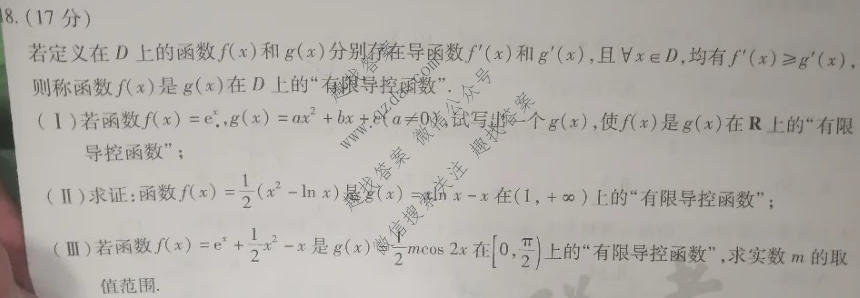 18.(17分)
若定义在D上的函数f(x)和g(x)分别存在导函数f′(x)和g′(x),且∀x∈D,均有f′(x)≥g′(x),
则称函数f(x)是g(x)在D上的“有限导控函数”.
(Ⅰ)若函数f(x)=eˣ,g(x)=ax²+bx+c(a≠0),试写出一个g(x),使f(x)是g(x)在R上的“有限
导控函数”;
(Ⅱ)求证:函数f(x)=1/2(x²-ln x)是g(x)=xln x-x在(1,+∞)上的“有限导控函数”;
(Ⅲ)若函数f(x)=eˣ+1/2x²-x是g(x)=1/2mcos 2x在[0,π/2)上的“有限导控函数”,求实数m的取
值范围.
趣找答案
www.qzda.com
微信公众号
趣找答案
微信搜索关注
趣找答案